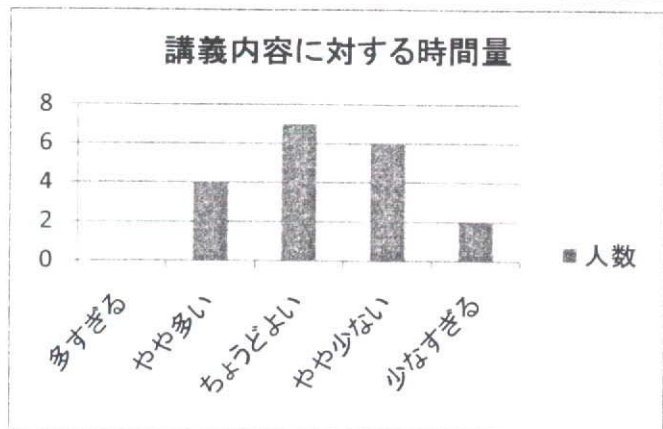 講義内容に対する時間量
8
6
4
2
0
多すぎる
やや多い
ちょうどよい
やや少ない
少なすぎる
人数